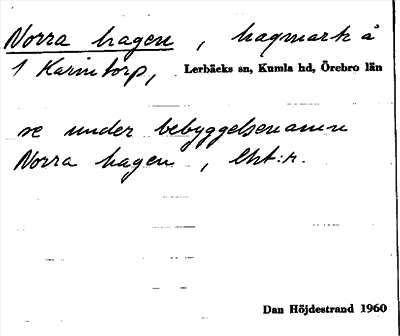 Norra hagen, hagmark å
1 Karintorp, Lerbäcks sn, Kumla hd, Örebro län
se under bebyggelsenamn
Norra hagen, lht:r.
Dan Höjdestrand 1960